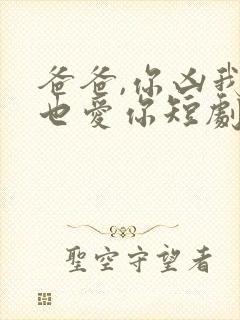 爸爸,你凶我
也愛你短劇
聖空守望者